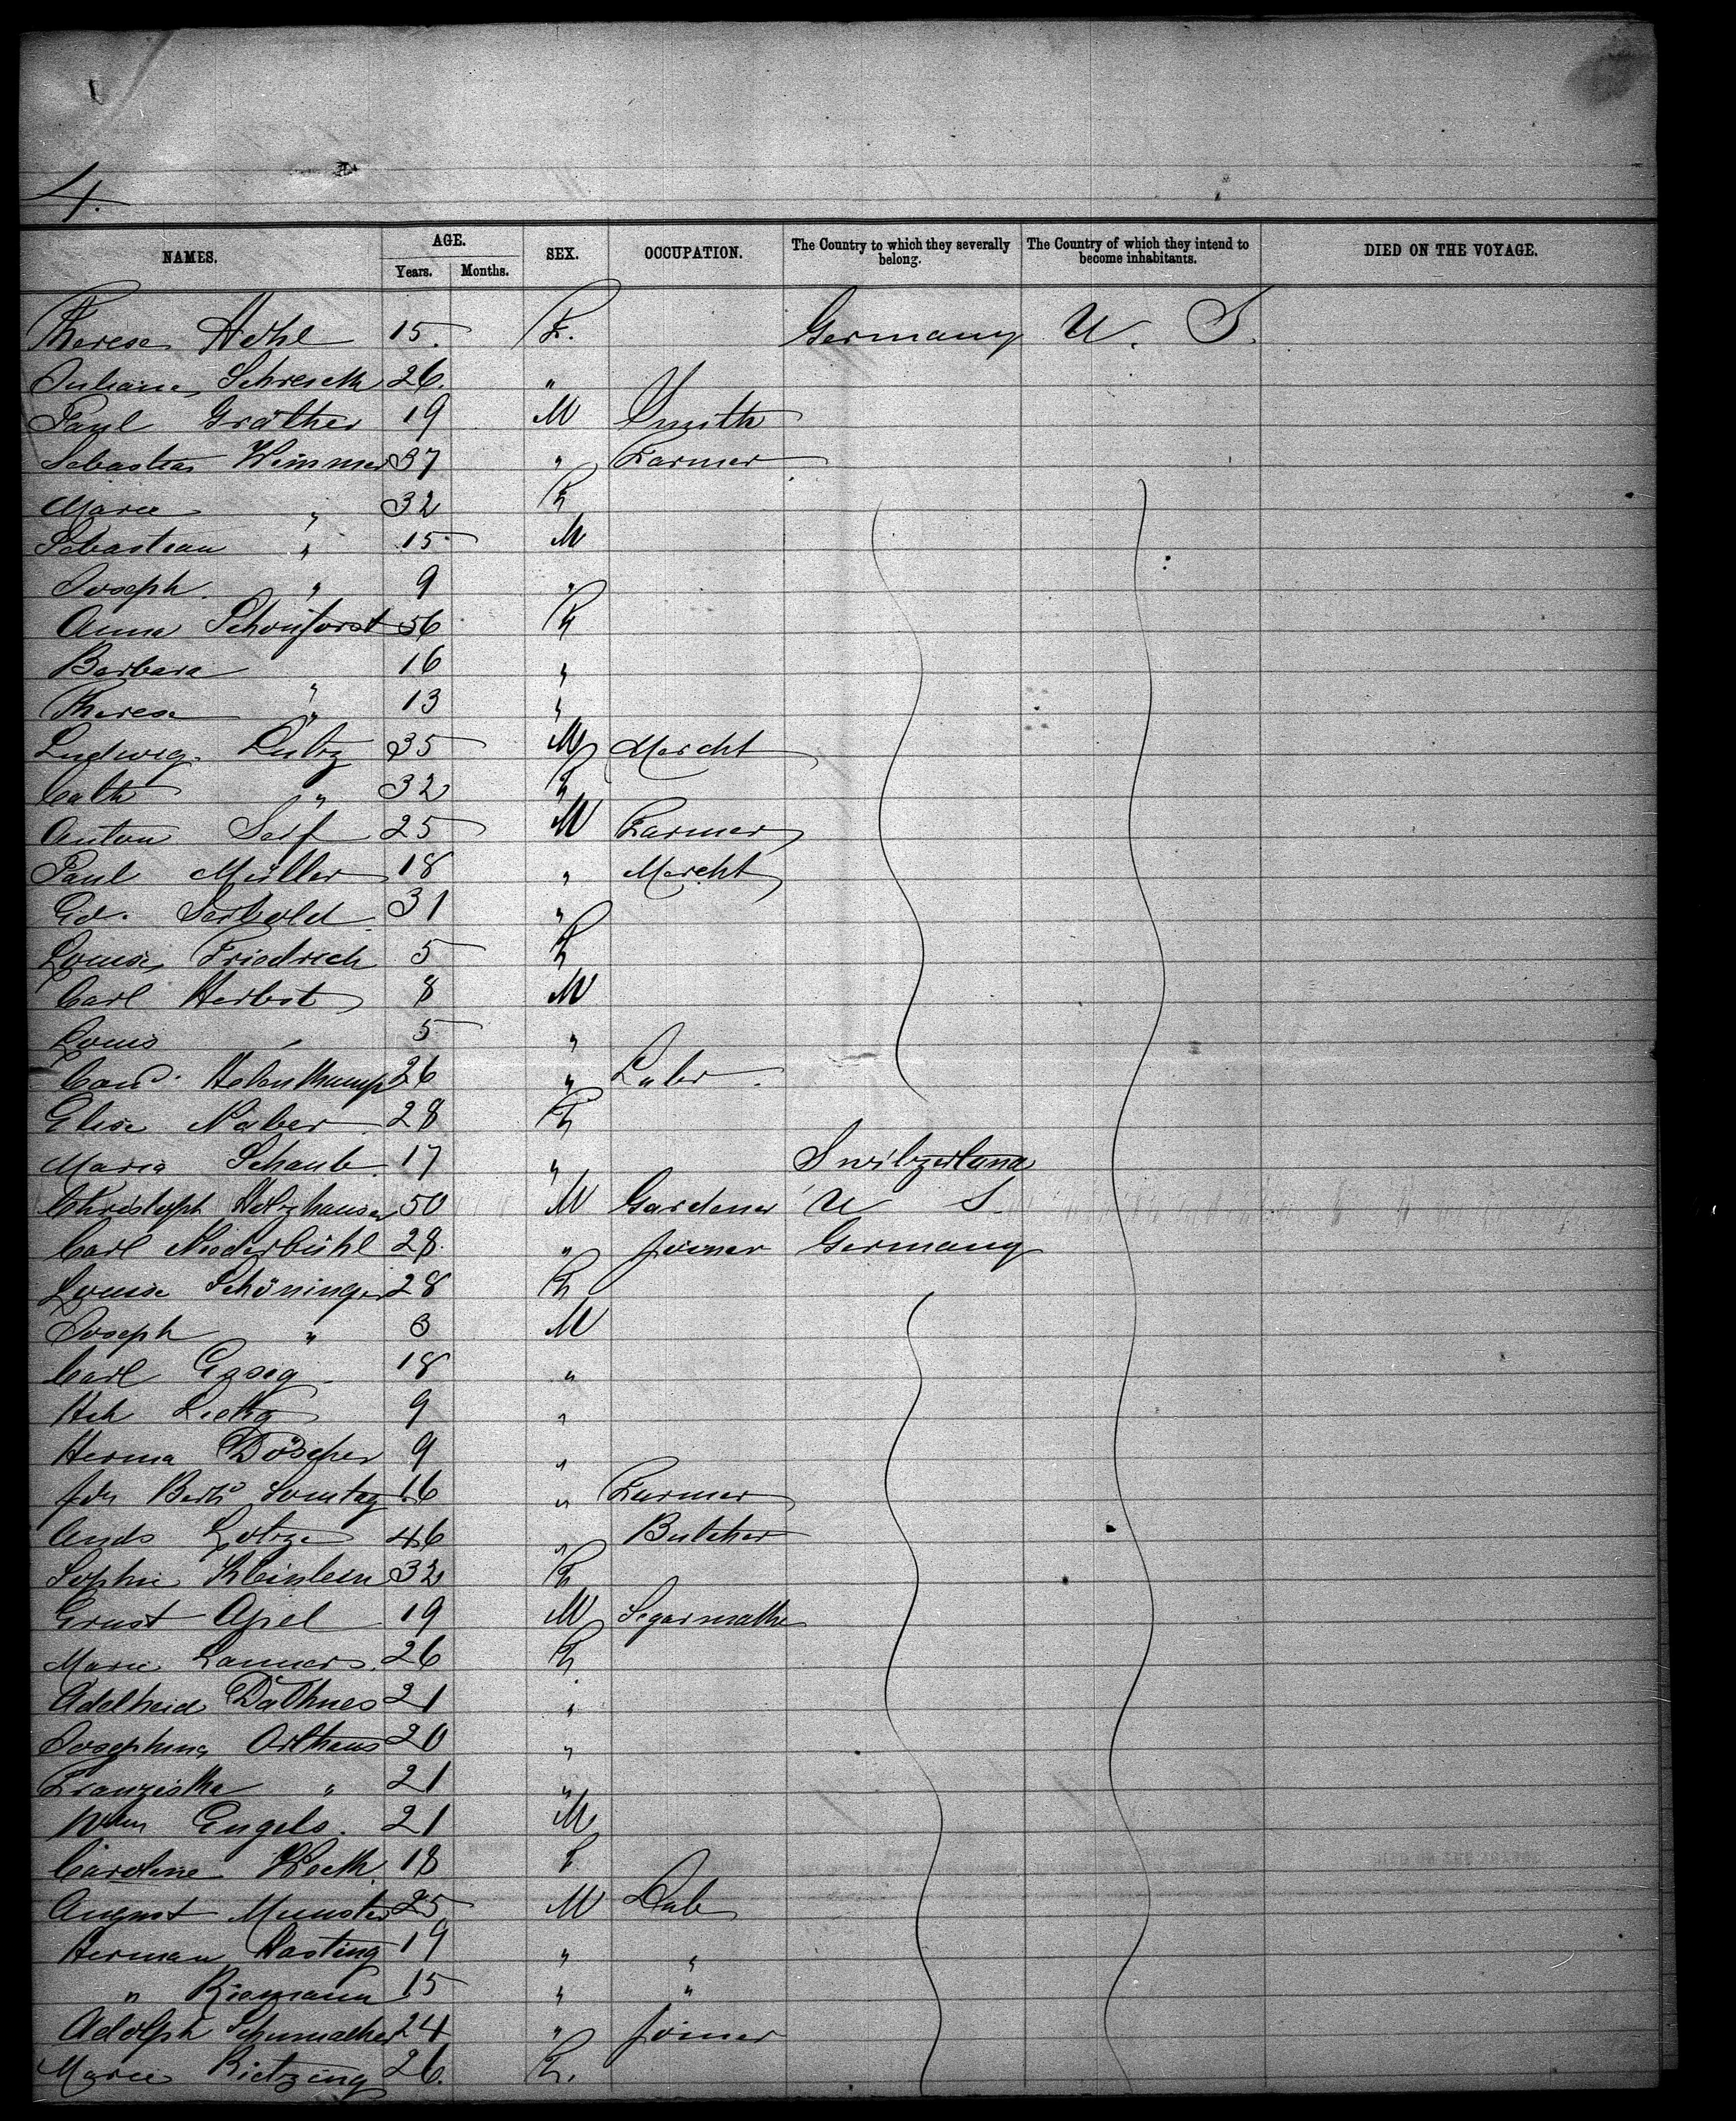 4.
NAMES. AGE. SEX. OCCUPATION. The Country to which they severally belong. The Country of which they intend to become inhabitants. DIED ON THE VOYAGE.
Years. Months.
Therese Hehl 15. F. Germany U. S.
Juliane 26. "
Paul Gräther 19 M Smith
Sebastian Wimmer 37 " Farmer
Marie " 32 F
Sebastian " 15 M
Joseph " 9 "
Anna Schonforst 56 F
Barbara " 16 "
Therese " 13 "
Ludwig Lutz 35 M Mercht
Cath " 32 F
Anton Seif 25 M Farmer
Paul Müller 18 " Mercht
Ed. Seibold 31 "
Louise Friedrich 5 F
Carl Herbst 8 M
Louis " 5 "
26 " Labr
Elise Naber 28 F
Maria Schaub 17 " Switzerland
Christoph Holzhauser 50 M Gardener U S
Carl Niederbühl 28. " Joiner Germany
Louise Schöninger 28 F
Joseph " 3 M
Carl Essig 18 "
9 "
Herma Döscher 9 "
Joh Berth Sonntag 16 " Farmer
Ands Gotze 46 " Butcher
Sophie Kleinlein 32 F
Ernst Apel 19 M Segarmaker
Marie Lanners 26 F
Adelheid 21 "
Josephine Orthaus 20 "
Franziska " 21 "
Wm Engels. 21 M
Caroline Koch 18 F
August Munster 25 M Lab
Herman Hasting 19 " "
" Riemann 15 " "
Adolph Schumacher 24 " Joiner
Marie Rietzing 26. F.